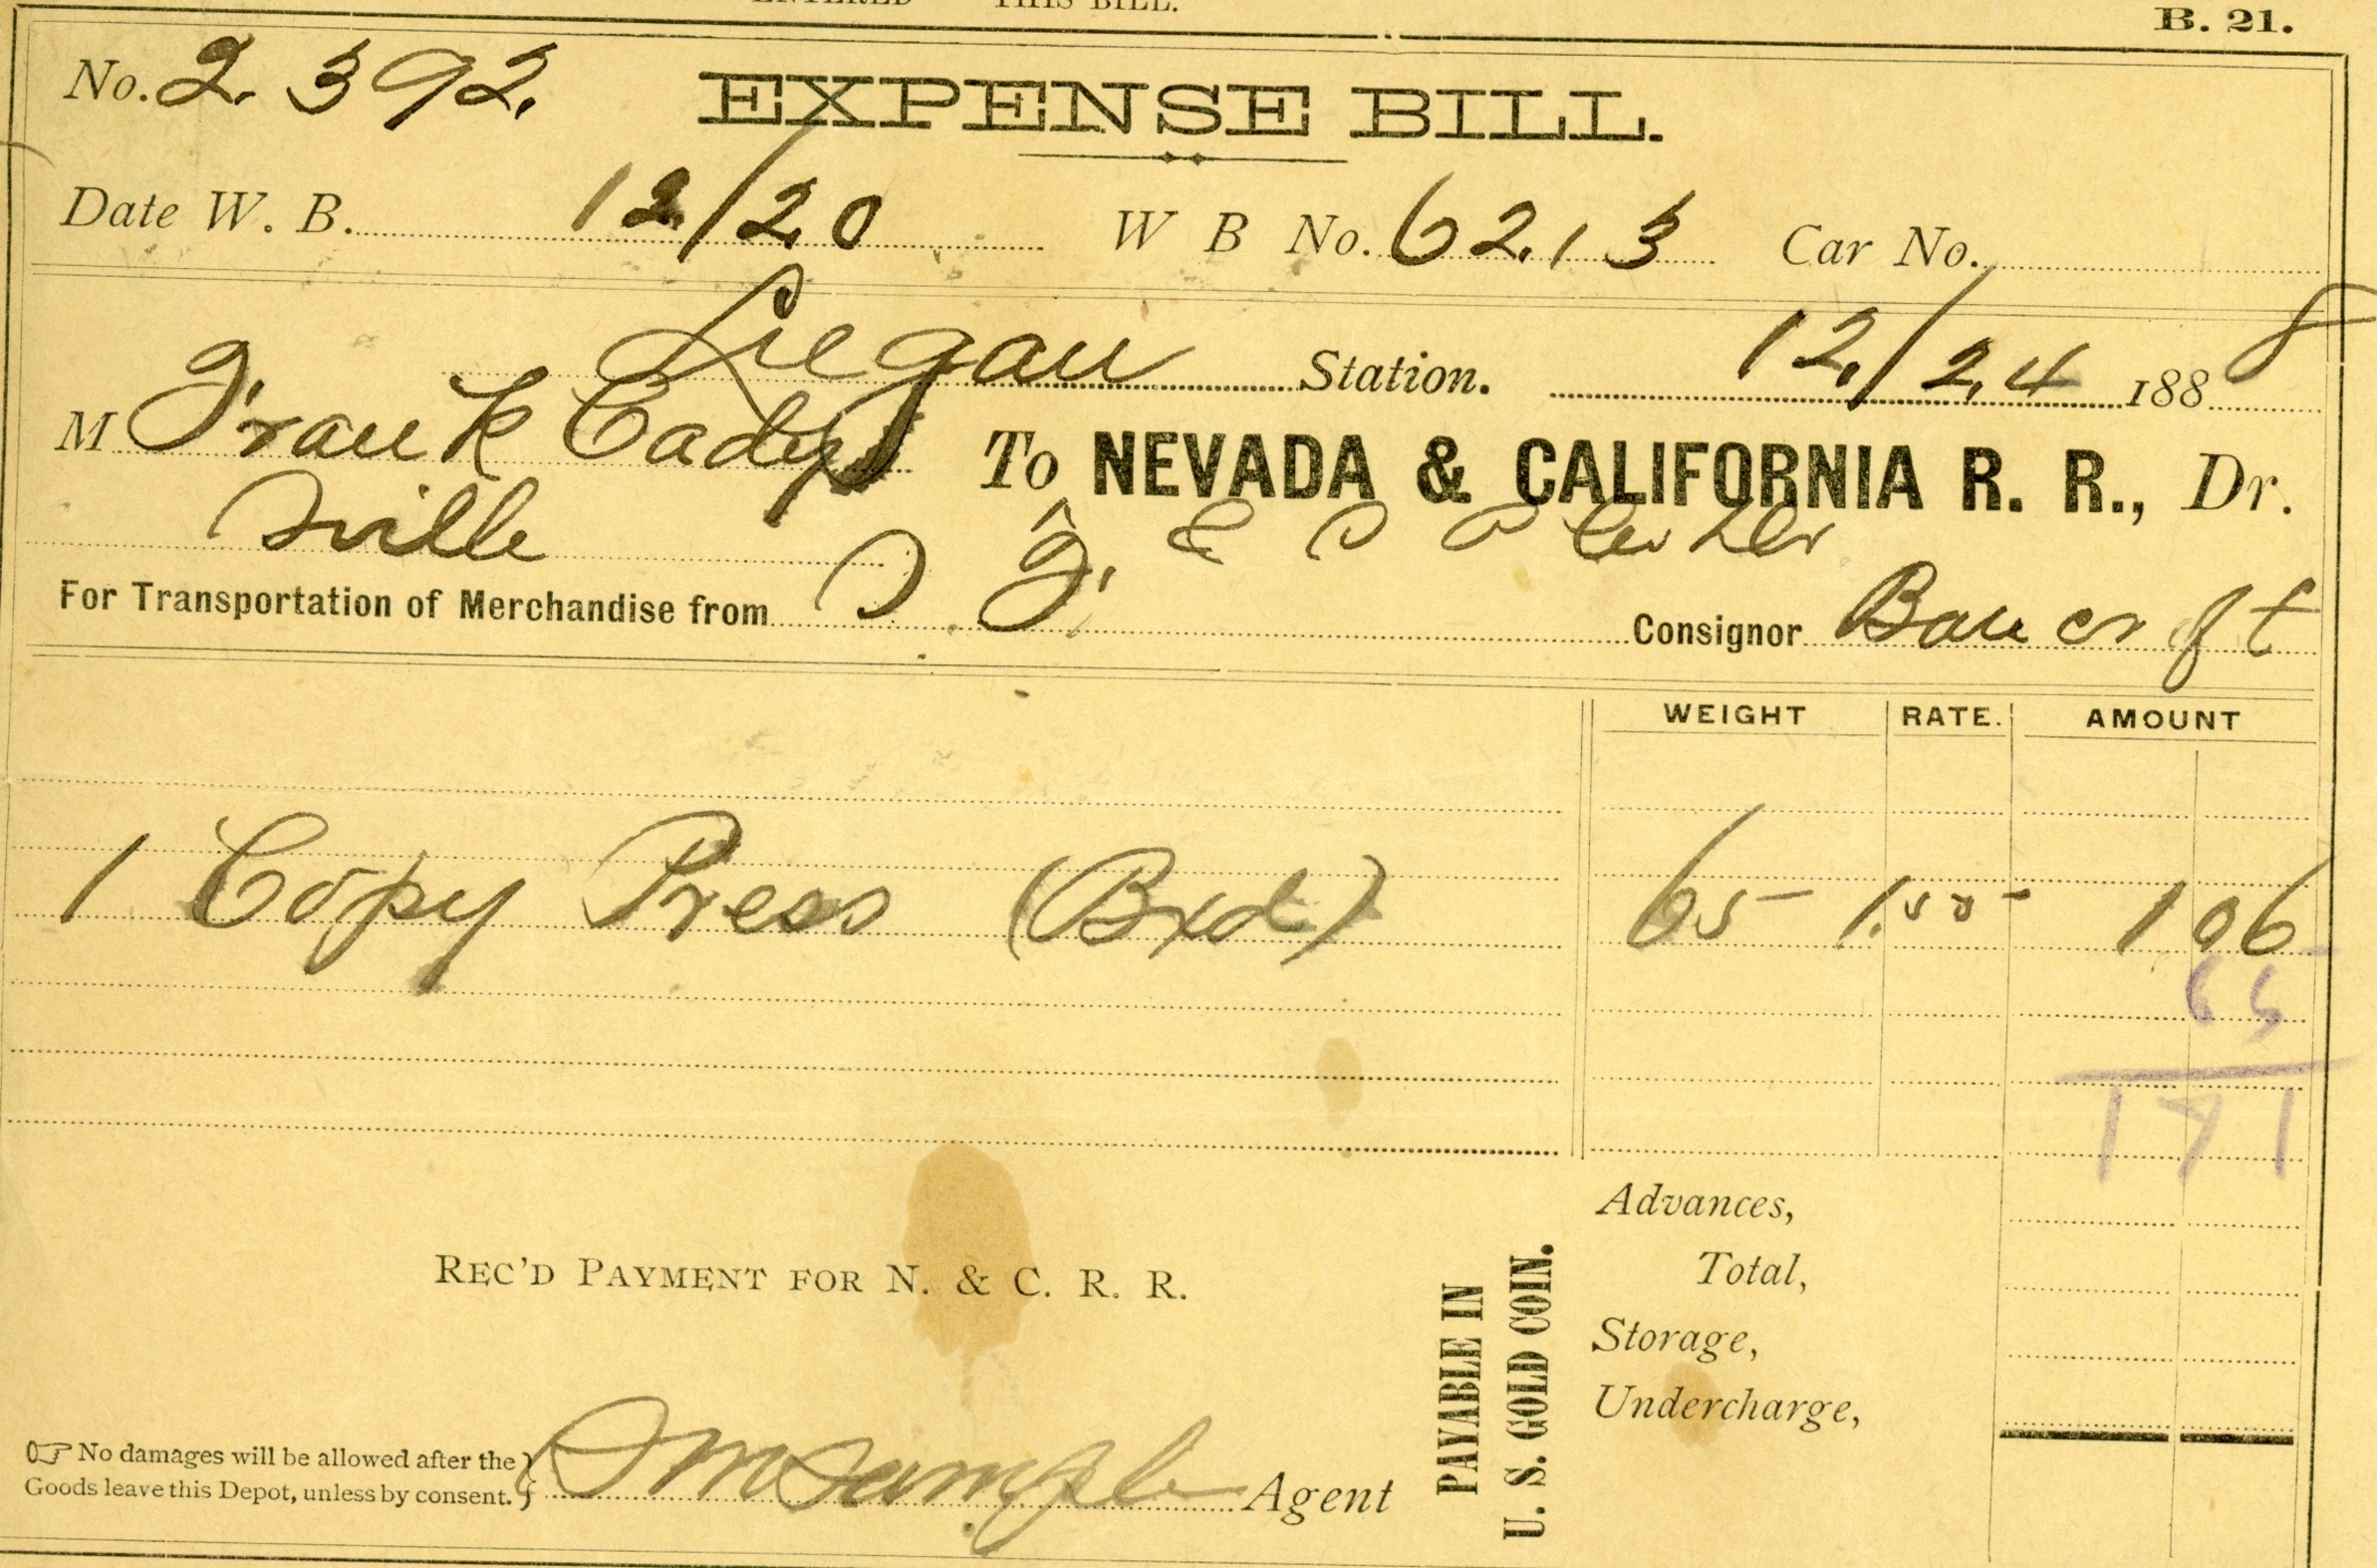 THIS BILL.
B. 21.
No. 2392
EXPENSE BILL.
Date W. B. 12/20 W B No. 6213 Car No.
Station. 12/24 1888
M Frank Cady To NEVADA & CALIFORNIA R. R., Dr.
Sville
For Transportation of Merchandise from S F. Consignor Bancrft
WEIGHT RATE. AMOUNT
1 Copy Press (Bxd) 65 1.55 1 06
65
1 71
Advances,
REC'D PAYMENT FOR N. & C. R. R.
Total,
Storage,
Undercharge,
PAYABLE IN
U. S. GOLD COIN.
☞ No damages will be allowed after the
Goods leave this Depot, unless by consent. } Agent